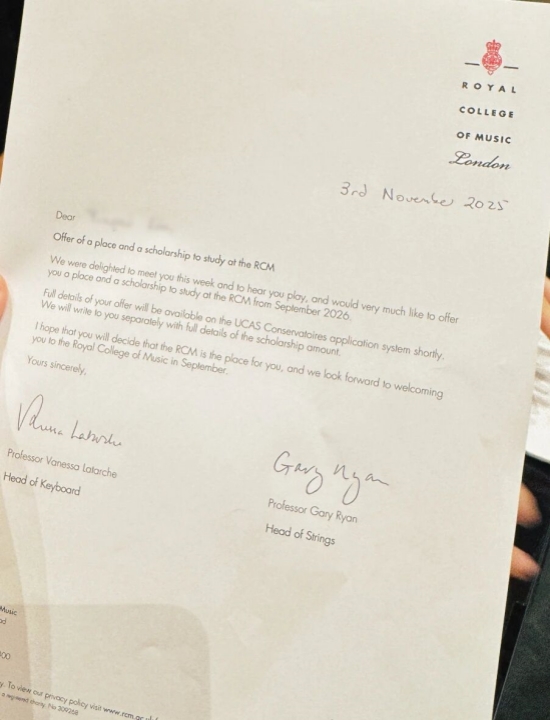 ROYAL
COLLEGE
OF MUSIC
London
3rd November 2025
Dear
Offer of a place and a scholarship to study at the RCM
We were delighted to meet you this week and to hear you play, and would very much like to offer
you a place and a scholarship to study at the RCM from September 2026.
Full details of your offer will be available on the UCAS Conservatoires application system shortly.
We will write to you separately with full details of the scholarship amount.
I hope that you will decide that the RCM is the place for you, and we look forward to welcoming
you to the Royal College of Music in September.
Yours sincerely,
Gary Ryan
Professor Vanessa Latarche
Professor Gary Ryan
Head of Keyboard
Head of Strings
Music
00
y. To view our privacy policy visit www.rcm.ac.
a registered charity. No 309268